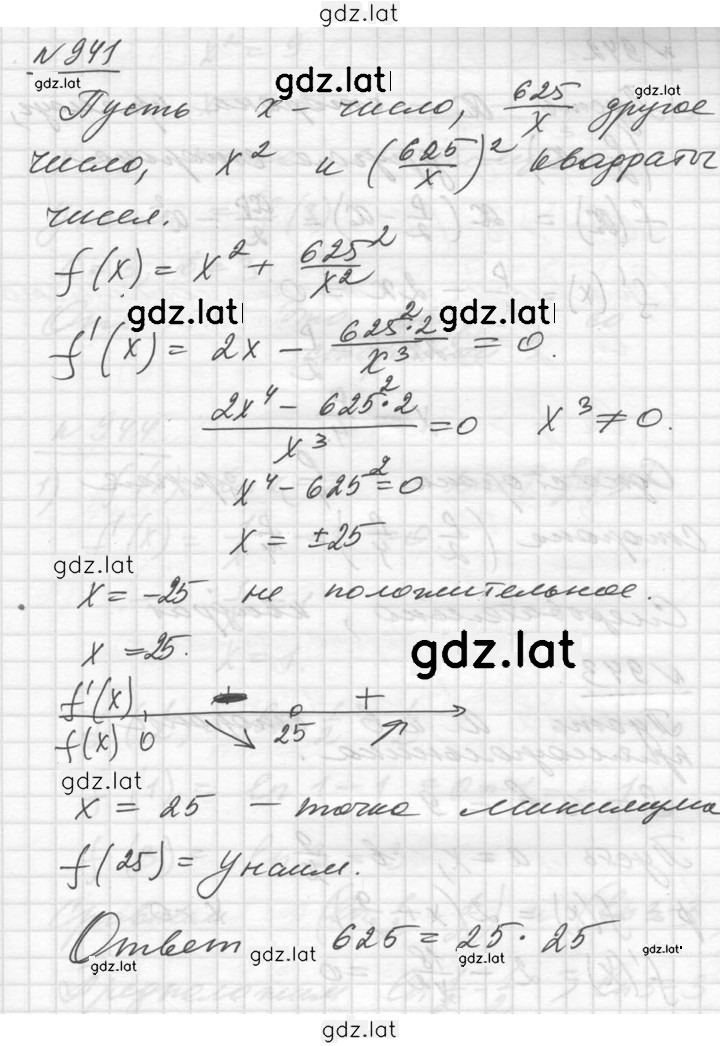 gdz.lat
№ 941
gdz.lat
gdz.lat
Пусть x - число, 625/x другое
число, x² и (625/x)² квадраты
чисел.
f(x) = x² + 625²/x²
gdz.lat gdz.lat
f'(x) = 2x - 625²·2/x³ = 0.
2x⁴ - 625²·2/x³ = 0 x³ ≠ 0.
x⁴ - 625² = 0
x = ±25
gdz.lat
x = -25 не положительное.
x = 25.
gdz.lat
f'(x) - +
f(x) 0 25
gdz.lat
x = 25 - точка минимума
f(25) = Унаим.
Ответ 625 = 25 · 25
gdz.lat gdz.lat gdz.lat gdz.lat
gdz.lat